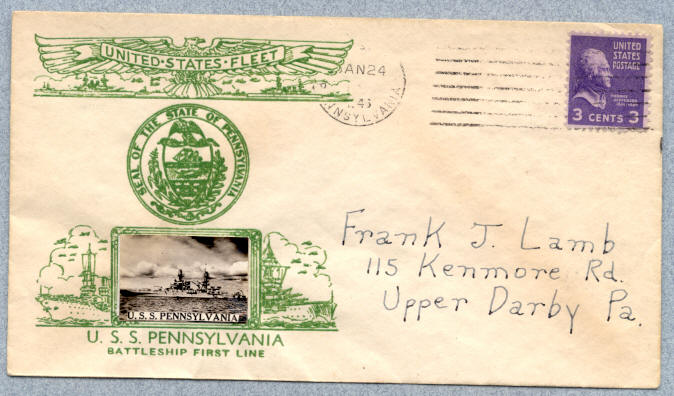 UNITED·STATES·FLEET
JAN 24
PENNSYLVANIA
UNITED
STATES
POSTAGE
THOMAS
JEFFERSON
3 CENTS 3
SEAL OF THE STATE OF PENNSYLVANIA
Frank J. Lamb
115 Kenmore Rd.
Upper Darby Pa.
U.S.S. PENNSYLVANIA
U. S. S. PENNSYLVANIA
BATTLESHIP FIRST LINE